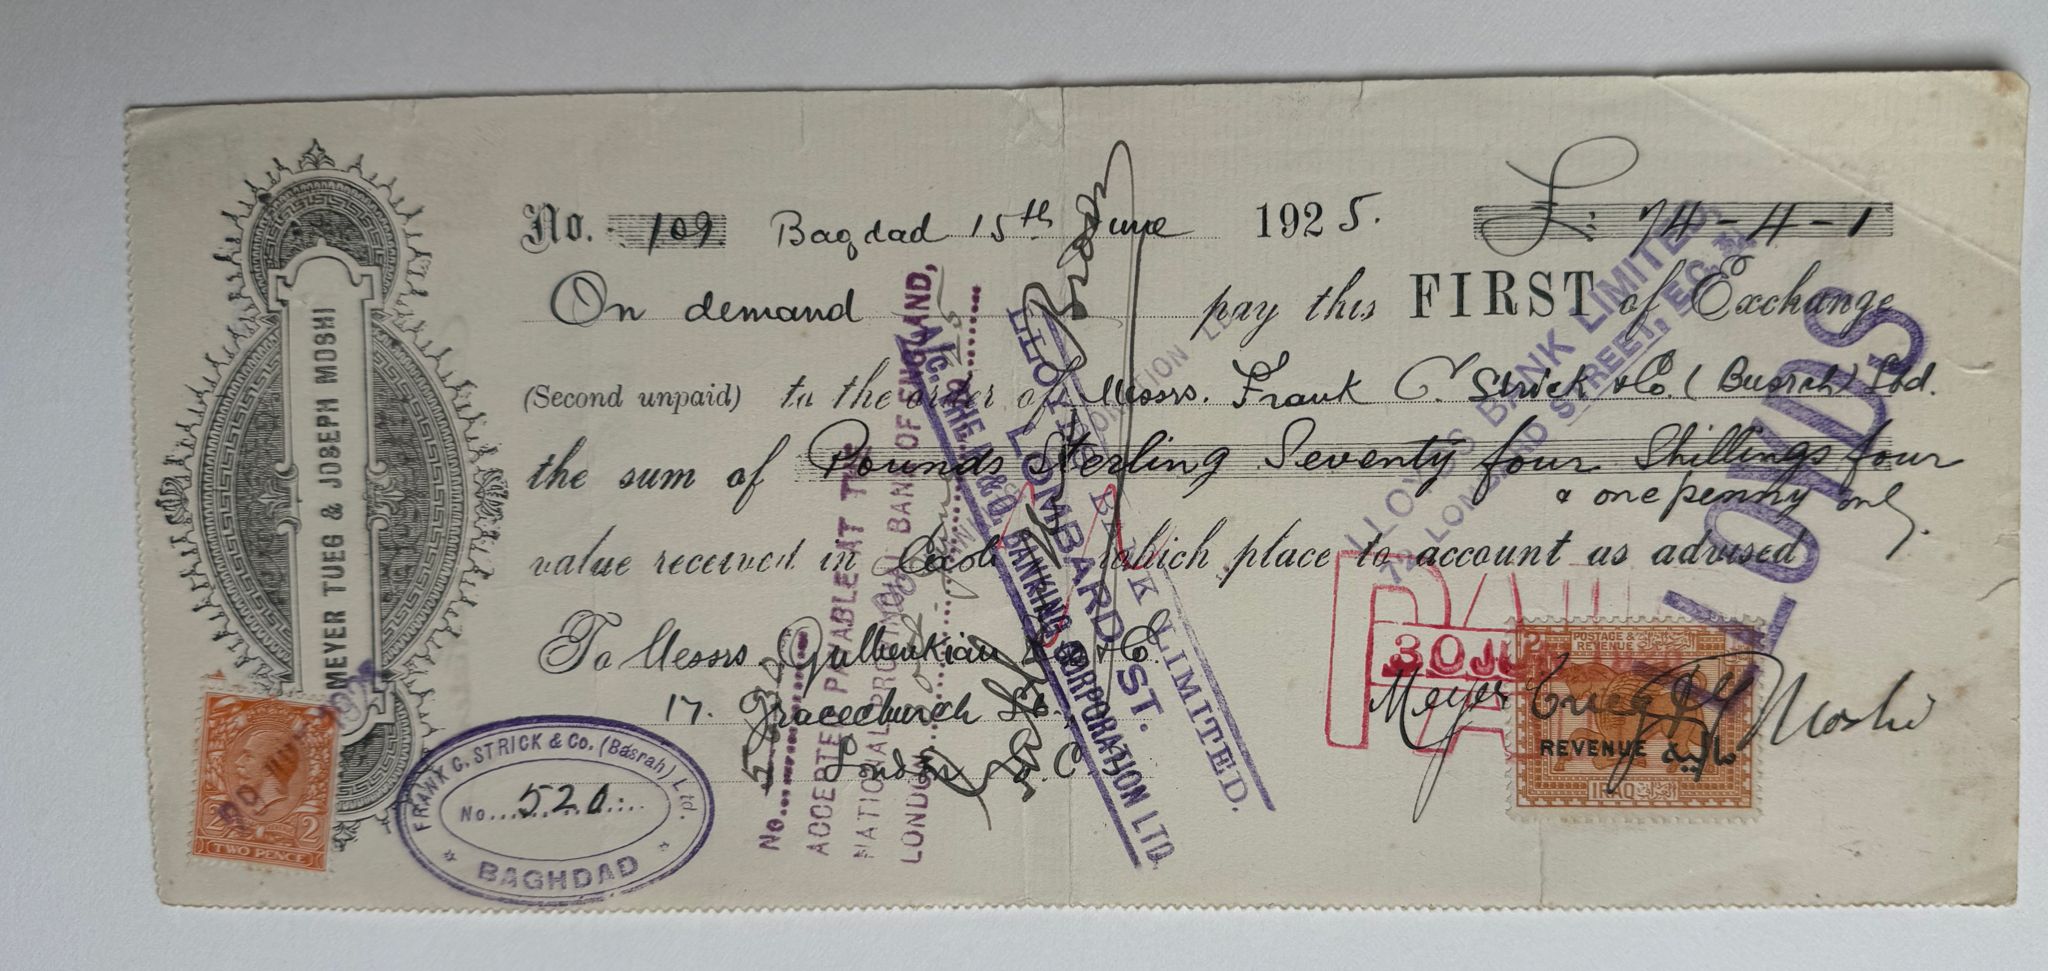 MEYER TUEG & JOSEPH MOSHI
No. 109. Bagdad 15th June 1925. £: 74-4-1
On demand pay this FIRST of Exchange
(Second unpaid) to the order of Messrs. Frank C. Strick & Co. (Busrah) Ltd.
the sum of Pounds Sterling Seventy four Shillings four
& one penny only.
value received in which place to account as advised
To Messrs. Gulbenkian & Co.
17. Gracechurch St.,
London E.C.
Meyer Tueg & J Moshi
2 2
TWO PENCE
FRANK C. STRICK & Co. (Basrah) Ltd.
No. 520
BAGHDAD
No.
ACCEBTE PAYABLE AT THE
NATIONAL PROVINCIAL BANK OF ENGLAND,
LONDON
A/C. THE
BANKING CORPORATION LTD.
LLOYDS BANK LIMITED.
LOMBARD ST.
LLOYDS BANK LIMITED,
72 LOMBARD STREET, E.C.3.
LLOYDS
PAID
30 JU
POSTAGE &
REVENUE
REVENUE مالية
IRAQ العراق